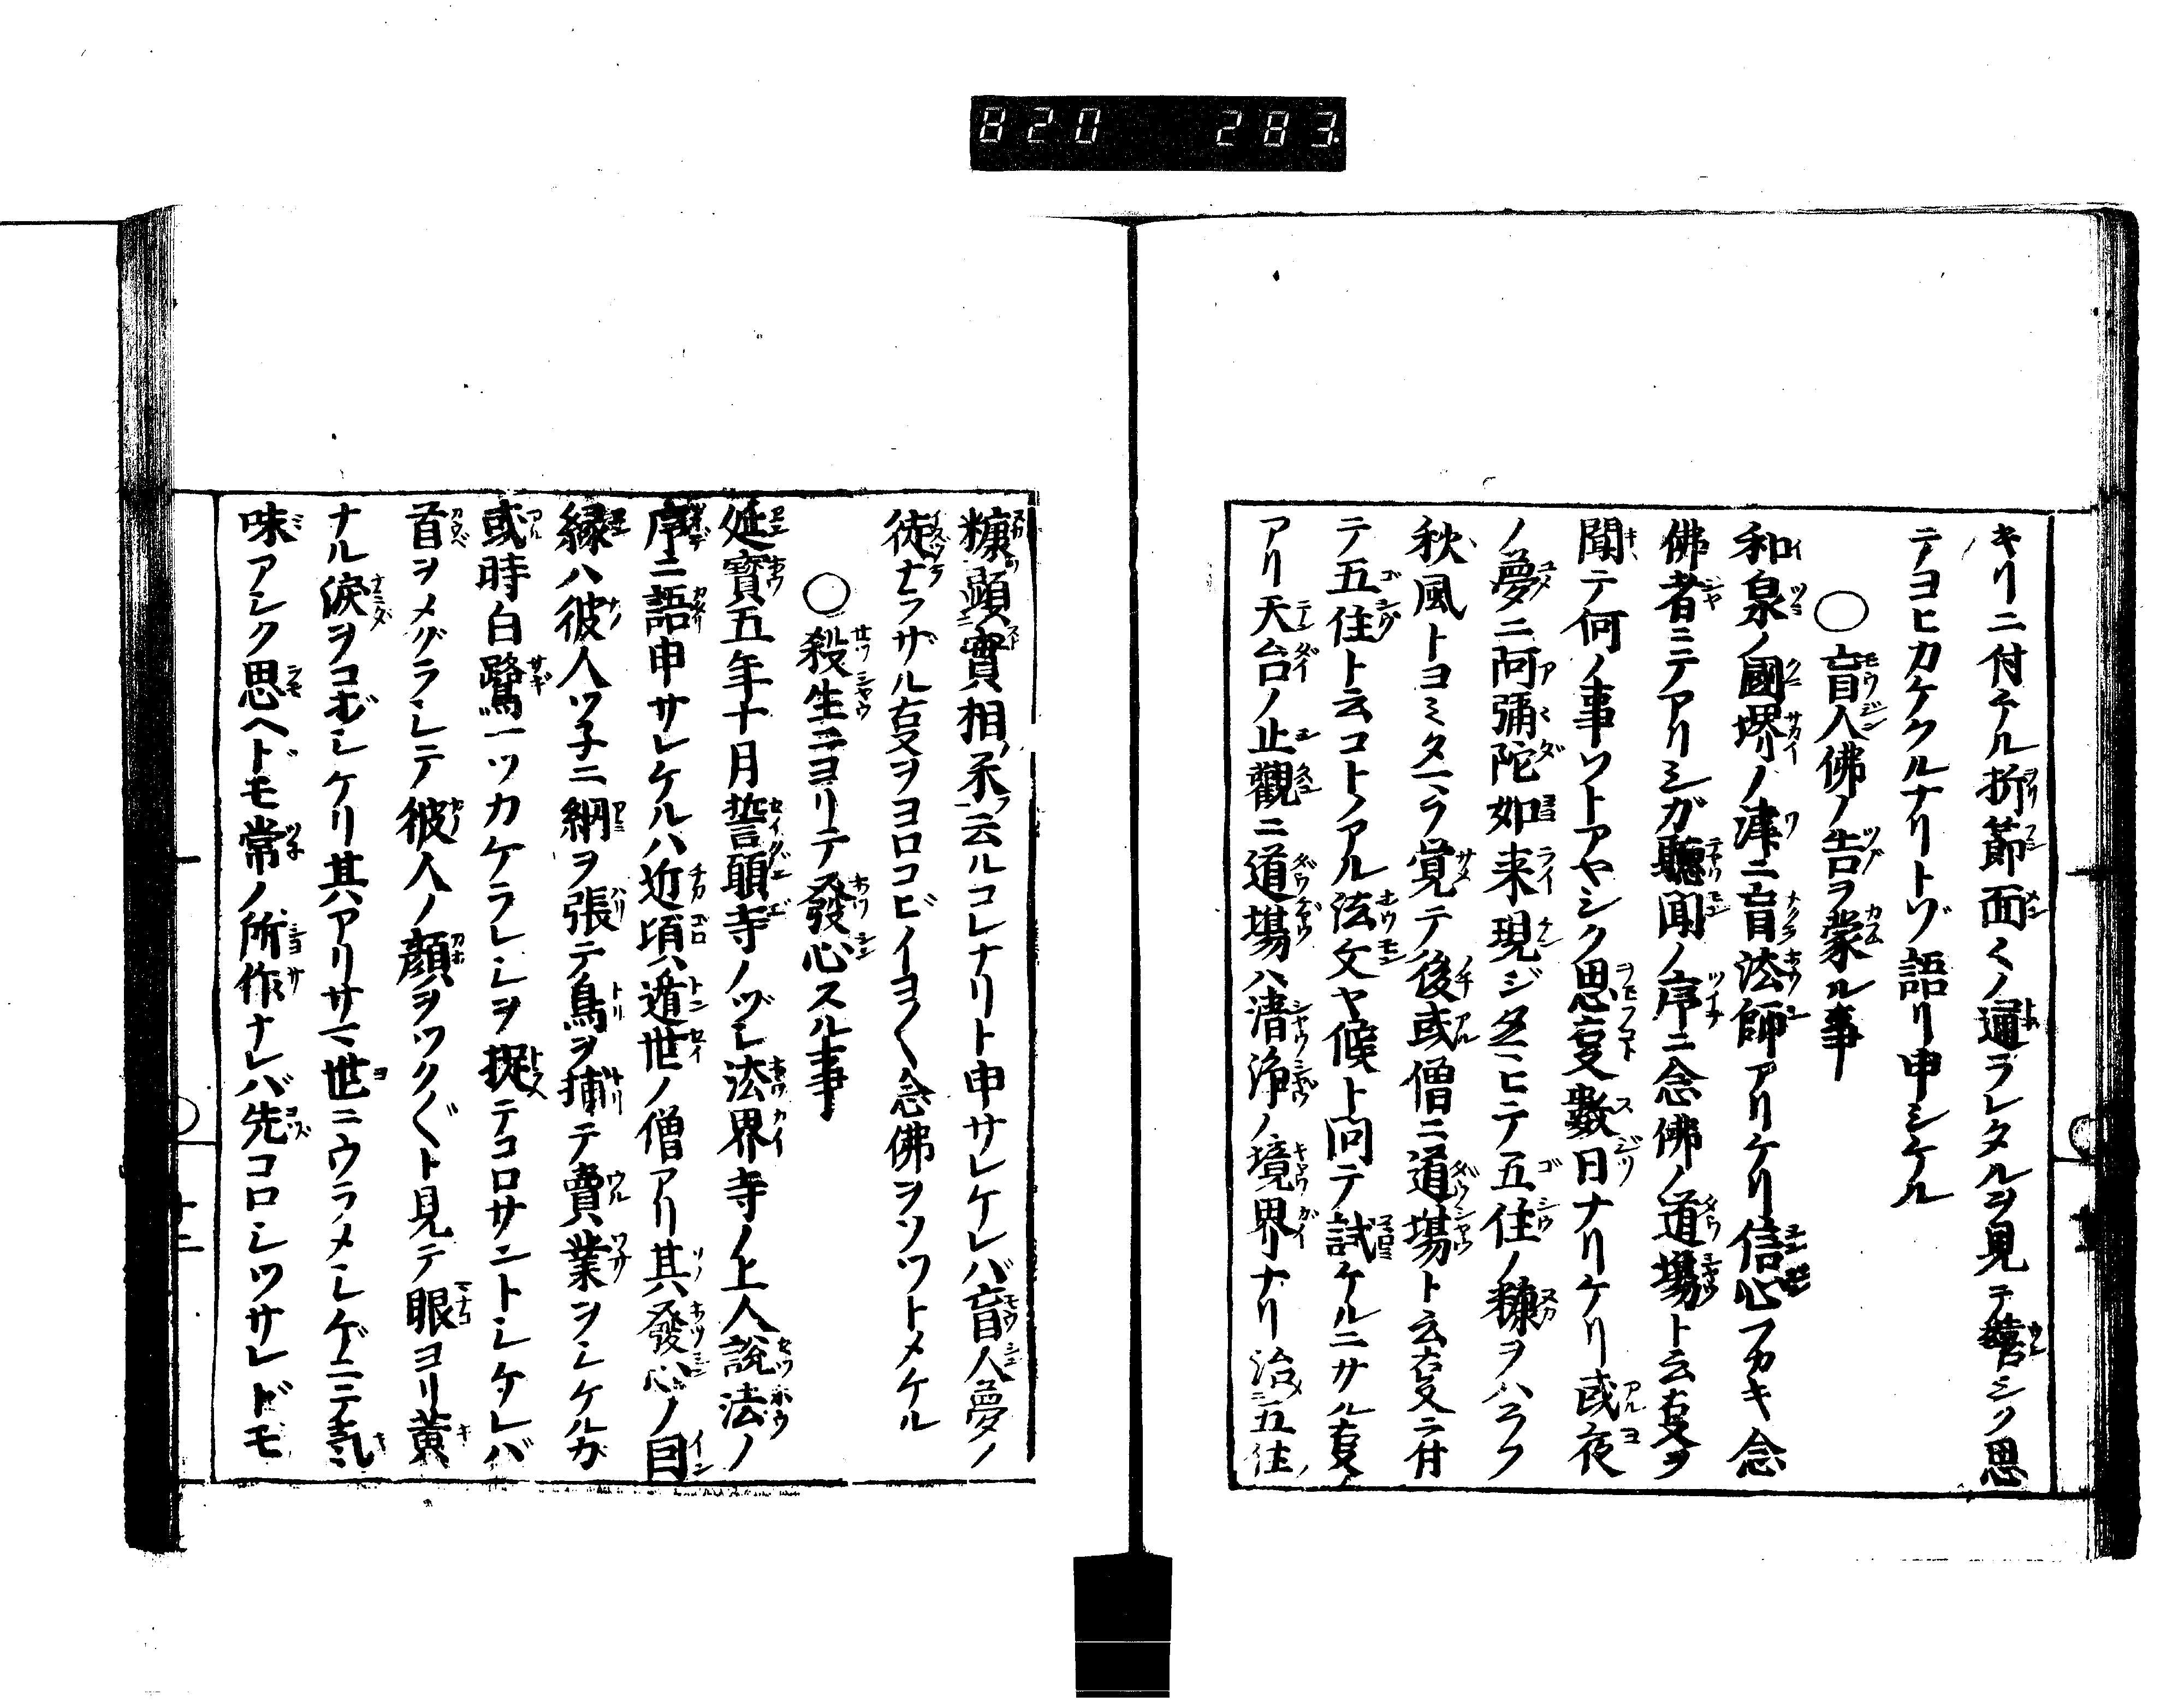 820 283
キリニ付テル折節面〱ノ通ラレタルヲ見テ嬉シク思
テヨヒカケクルナリトゾ語リ申シケル
○盲人佛ノ告ヲ蒙ル事
和泉ノ國堺ノ津ニ盲法師アリケリ信心フカキ念
佛者ニテアリシガ聽聞ノ序ニ念佛ノ道場ト云事ヲ
聞テ何ノ事ソトアヤシク思事數日ナリケリ或夜
ノ夢ニ阿彌陀如来現ジタマヒテ五住ノ糠ヲハラフ
秋風トヨミタマフ覚テ後或僧ニ道場ト云事ニ付
テ五住ト云コトノアル法文ヤ候ト問テ試ケルニサル事
アリ天台ノ止觀ニ道場ハ清浄ノ境界ナリ治五住ノ
糠顕實相ノ米ヲ云ルコレナリト申サレケレバ盲人夢ノ
徒ナラザル事ヲヨロコビイヨ〱念佛ヲソツトメケル
○殺生ニヨリテ發心スル事
延寶五年十月誓願寺ノヅシ法界寺ノ上人說法ノ
序ニ語申サレケルハ近頃遁世ノ僧アリ其發心ノ因
縁ハ彼人ツ子ニ網ヲ張テ鳥ヲ捕テ賣業ヲシケルカ
或時白鷺一ツカケラレシヲ捉テコロサントシケレバ
首ヲメグラシテ彼人ノ顔ヲツク〲ト見テ眼ヨリ黄
ナル淚ヲコボシケリ其アリサマ世ニウラメシゲニテ氣
味アシク思ヘドモ常ノ所作ナレバ先コロシツサレドモ
十二